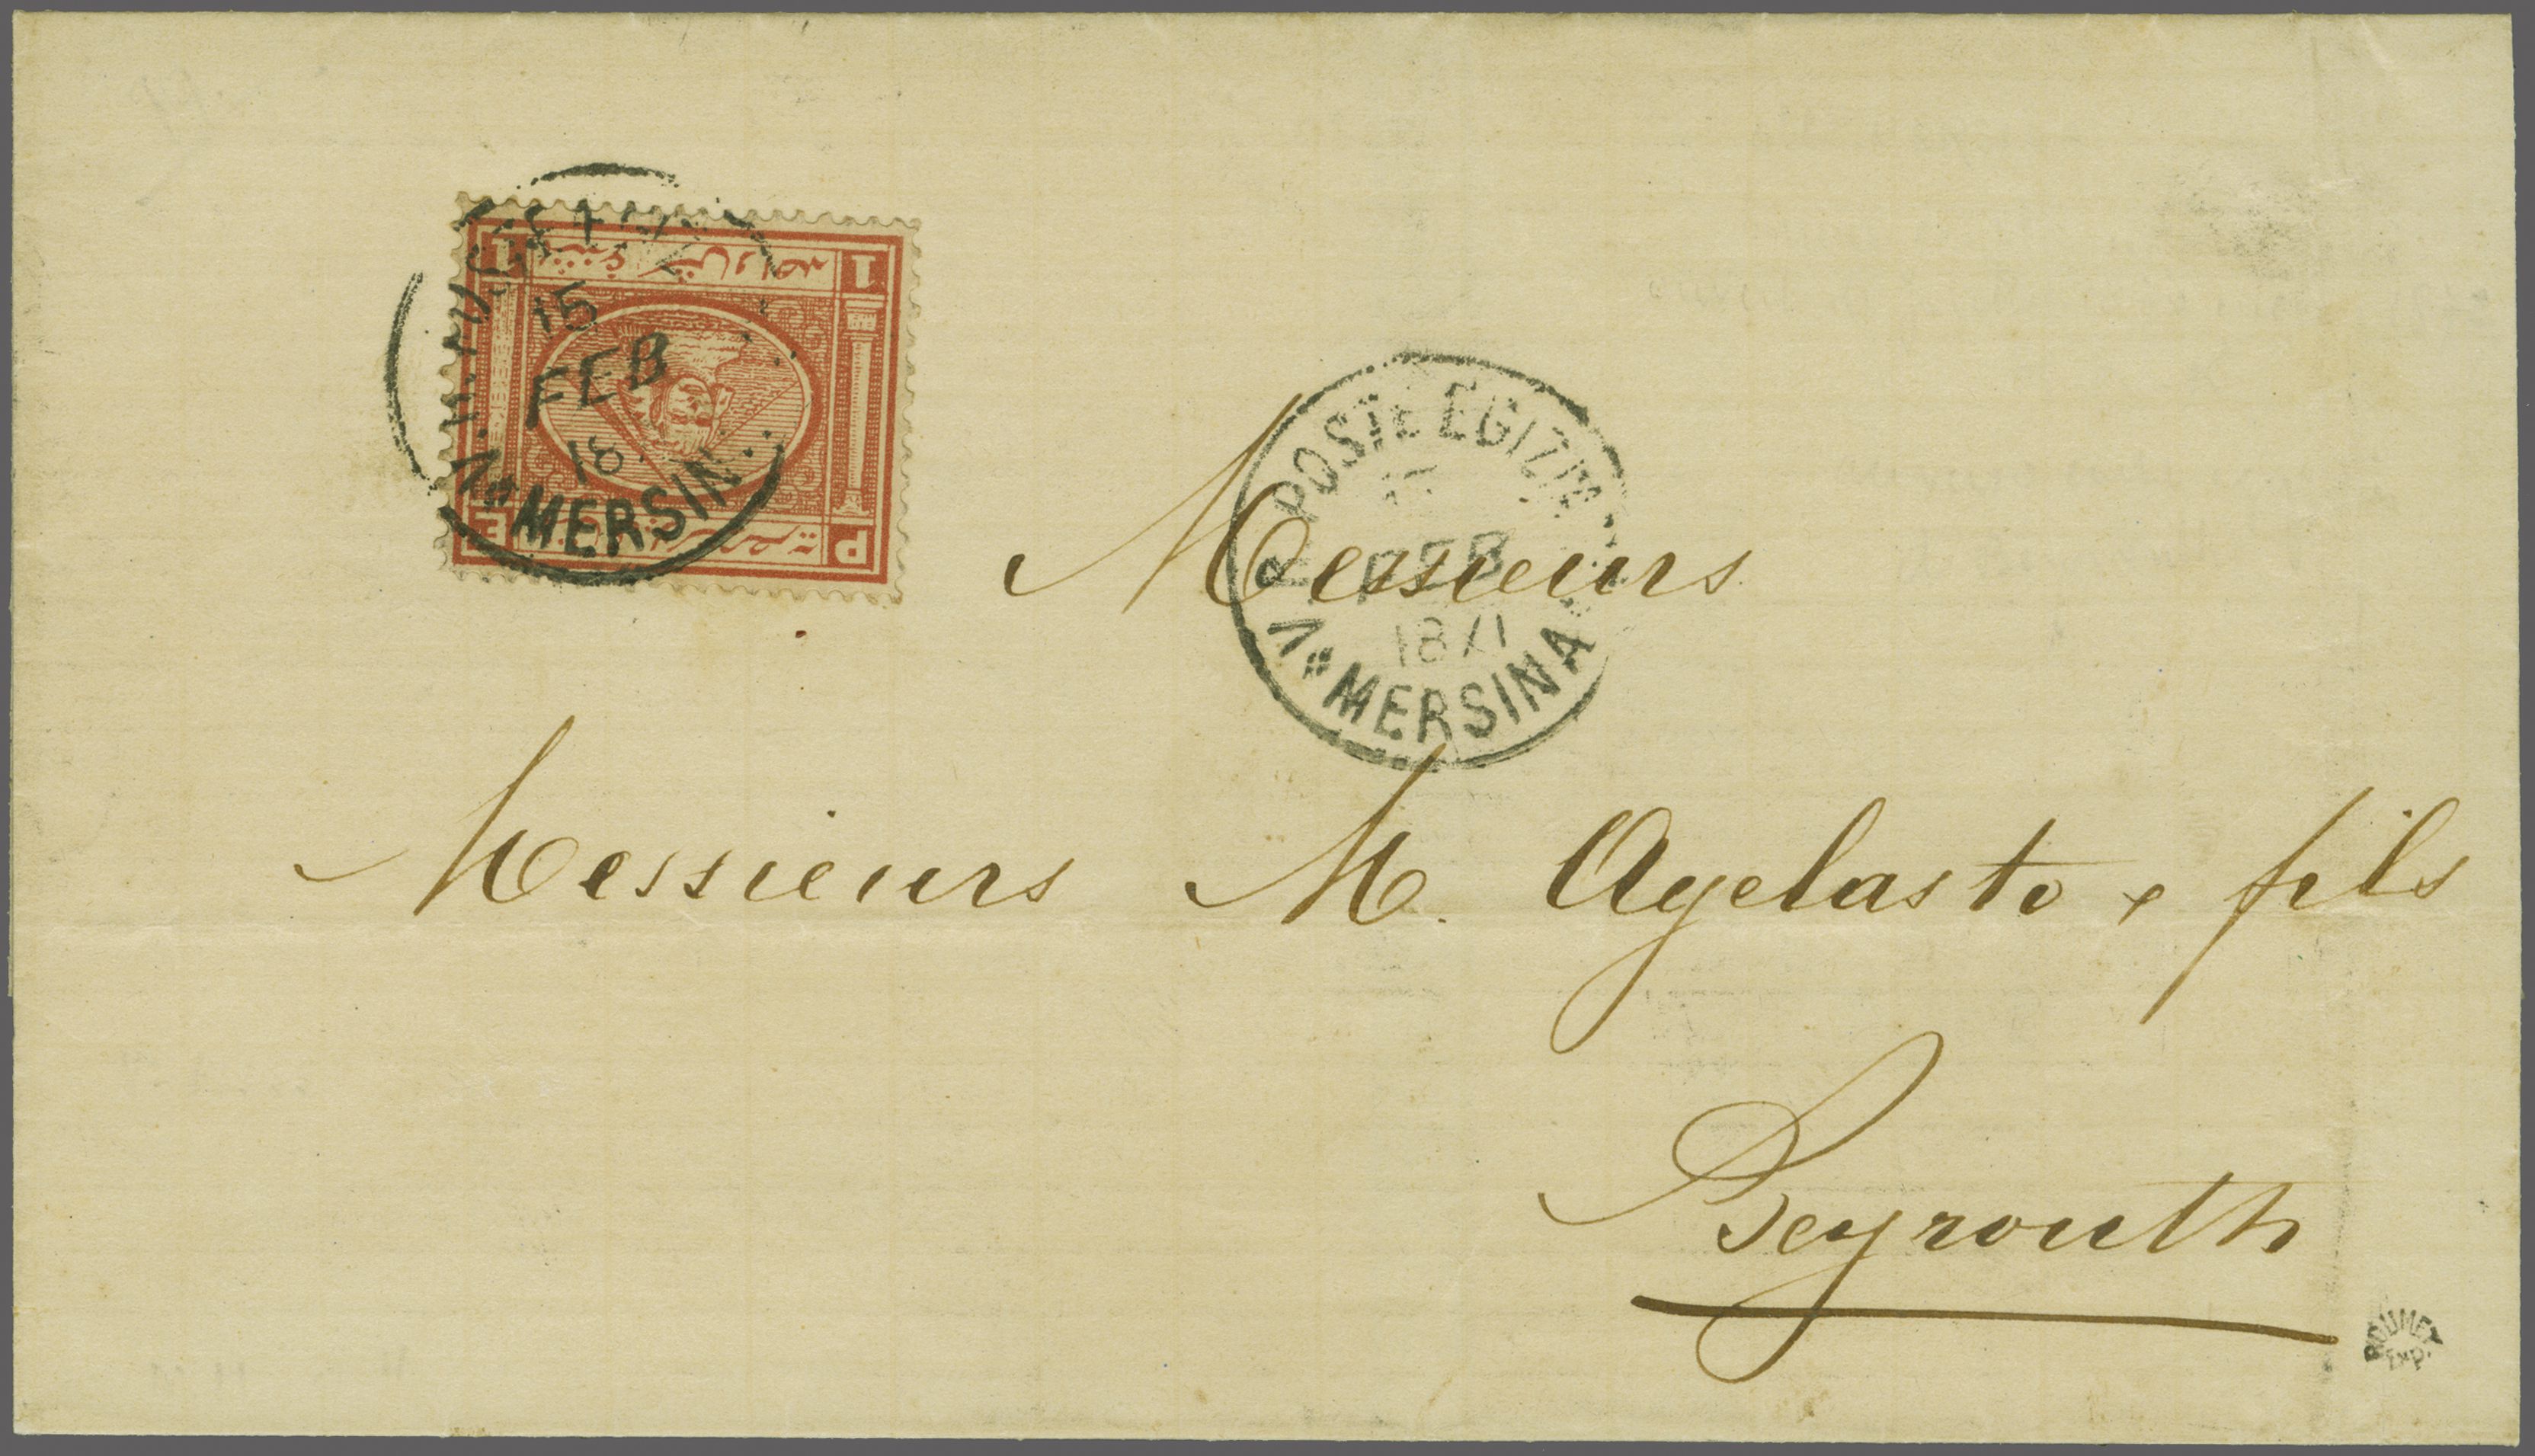 15
FEB
18
MERSIN
1
1
P
E
POSTE EGIZIA
FEB
1871
V. R.
MERSINA
Messieurs
Messieurs M. Agelasto & fils
Beyrouth
ROUMET
Exp.